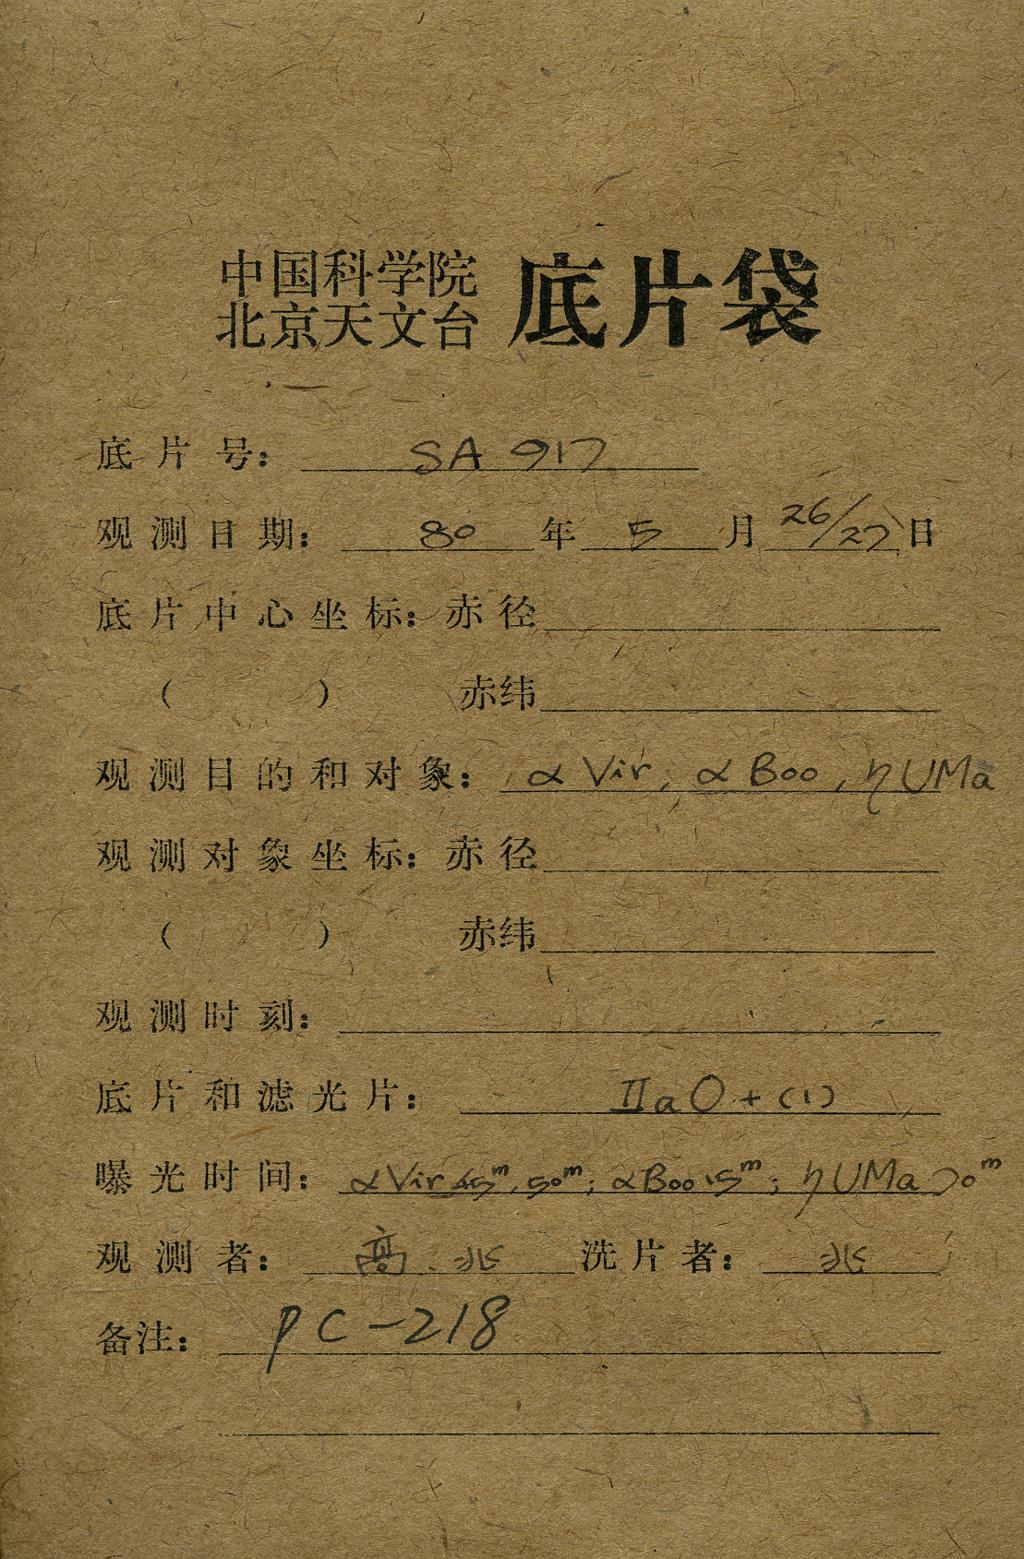 中国科学院
北京天文台 底片袋
底片号: SA 917
观测日期: 80 年 5 月 26/27 日
底片中心坐标: 赤径
( ) 赤纬
观测目的和对象: α Vir, α Boo, η UMa
观测对象坐标: 赤径
( ) 赤纬
观测时刻:
底片和滤光片: IIaO + (1)
曝光时间: αVir 45ᵐ, 50ᵐ; αBoo 15ᵐ; ηUMa 70ᵐ
观测者: 高. 兆 洗片者: 兆
备注: PC-218